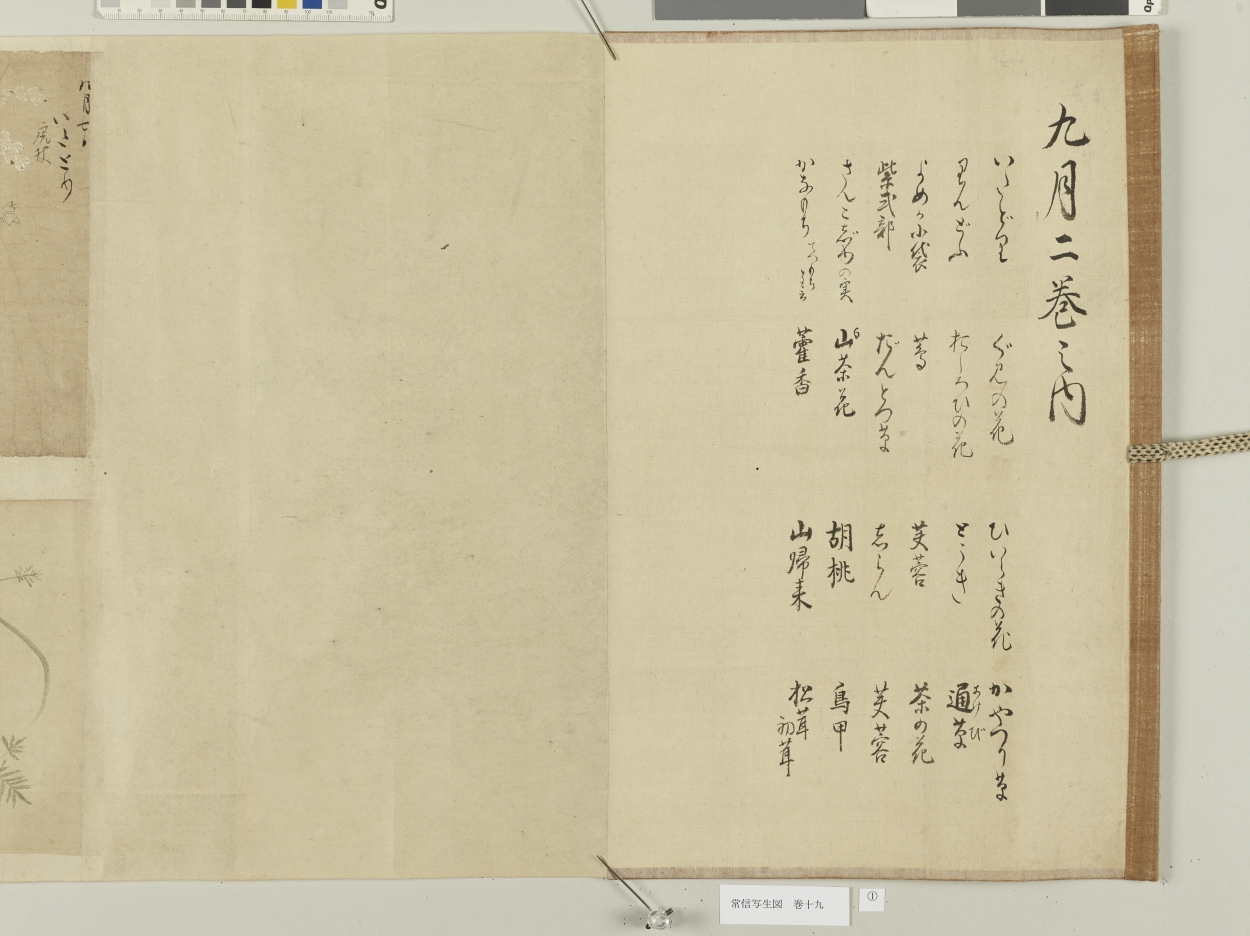 九月二巻之内
いたどり
ぐみの花
ひいらきの花
かやつり草
りんどふ
おしろひの花
とうき
通草
あけび
よめか小袋
蔦
芙蓉
茶の花
紫式部
だんとつ草
志らん
芙蓉
さんこじゆの実
山茶花
胡桃
鳥甲
かなもち
藿香
山帰来
松茸
初茸
いたとり
虎杖
常信写生図 巻十九
①